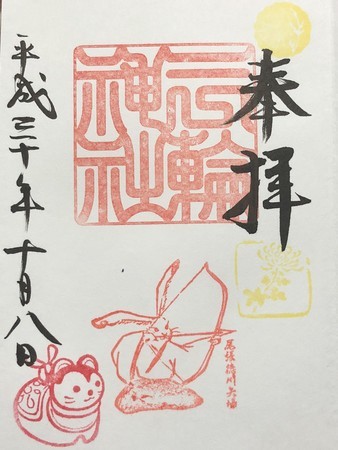 奉拝
三輪神社
尾張徳川矢場
平成三十年十月八日